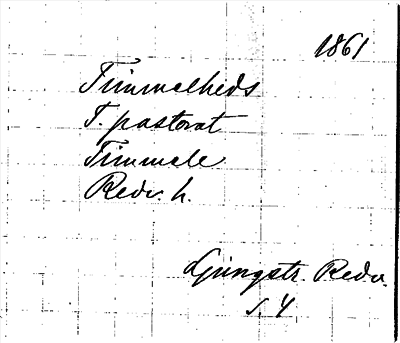 1861
Timmelheds
T. pastorat
Timmele
Redv. h.
Ljungstr. Redv.
s. 4